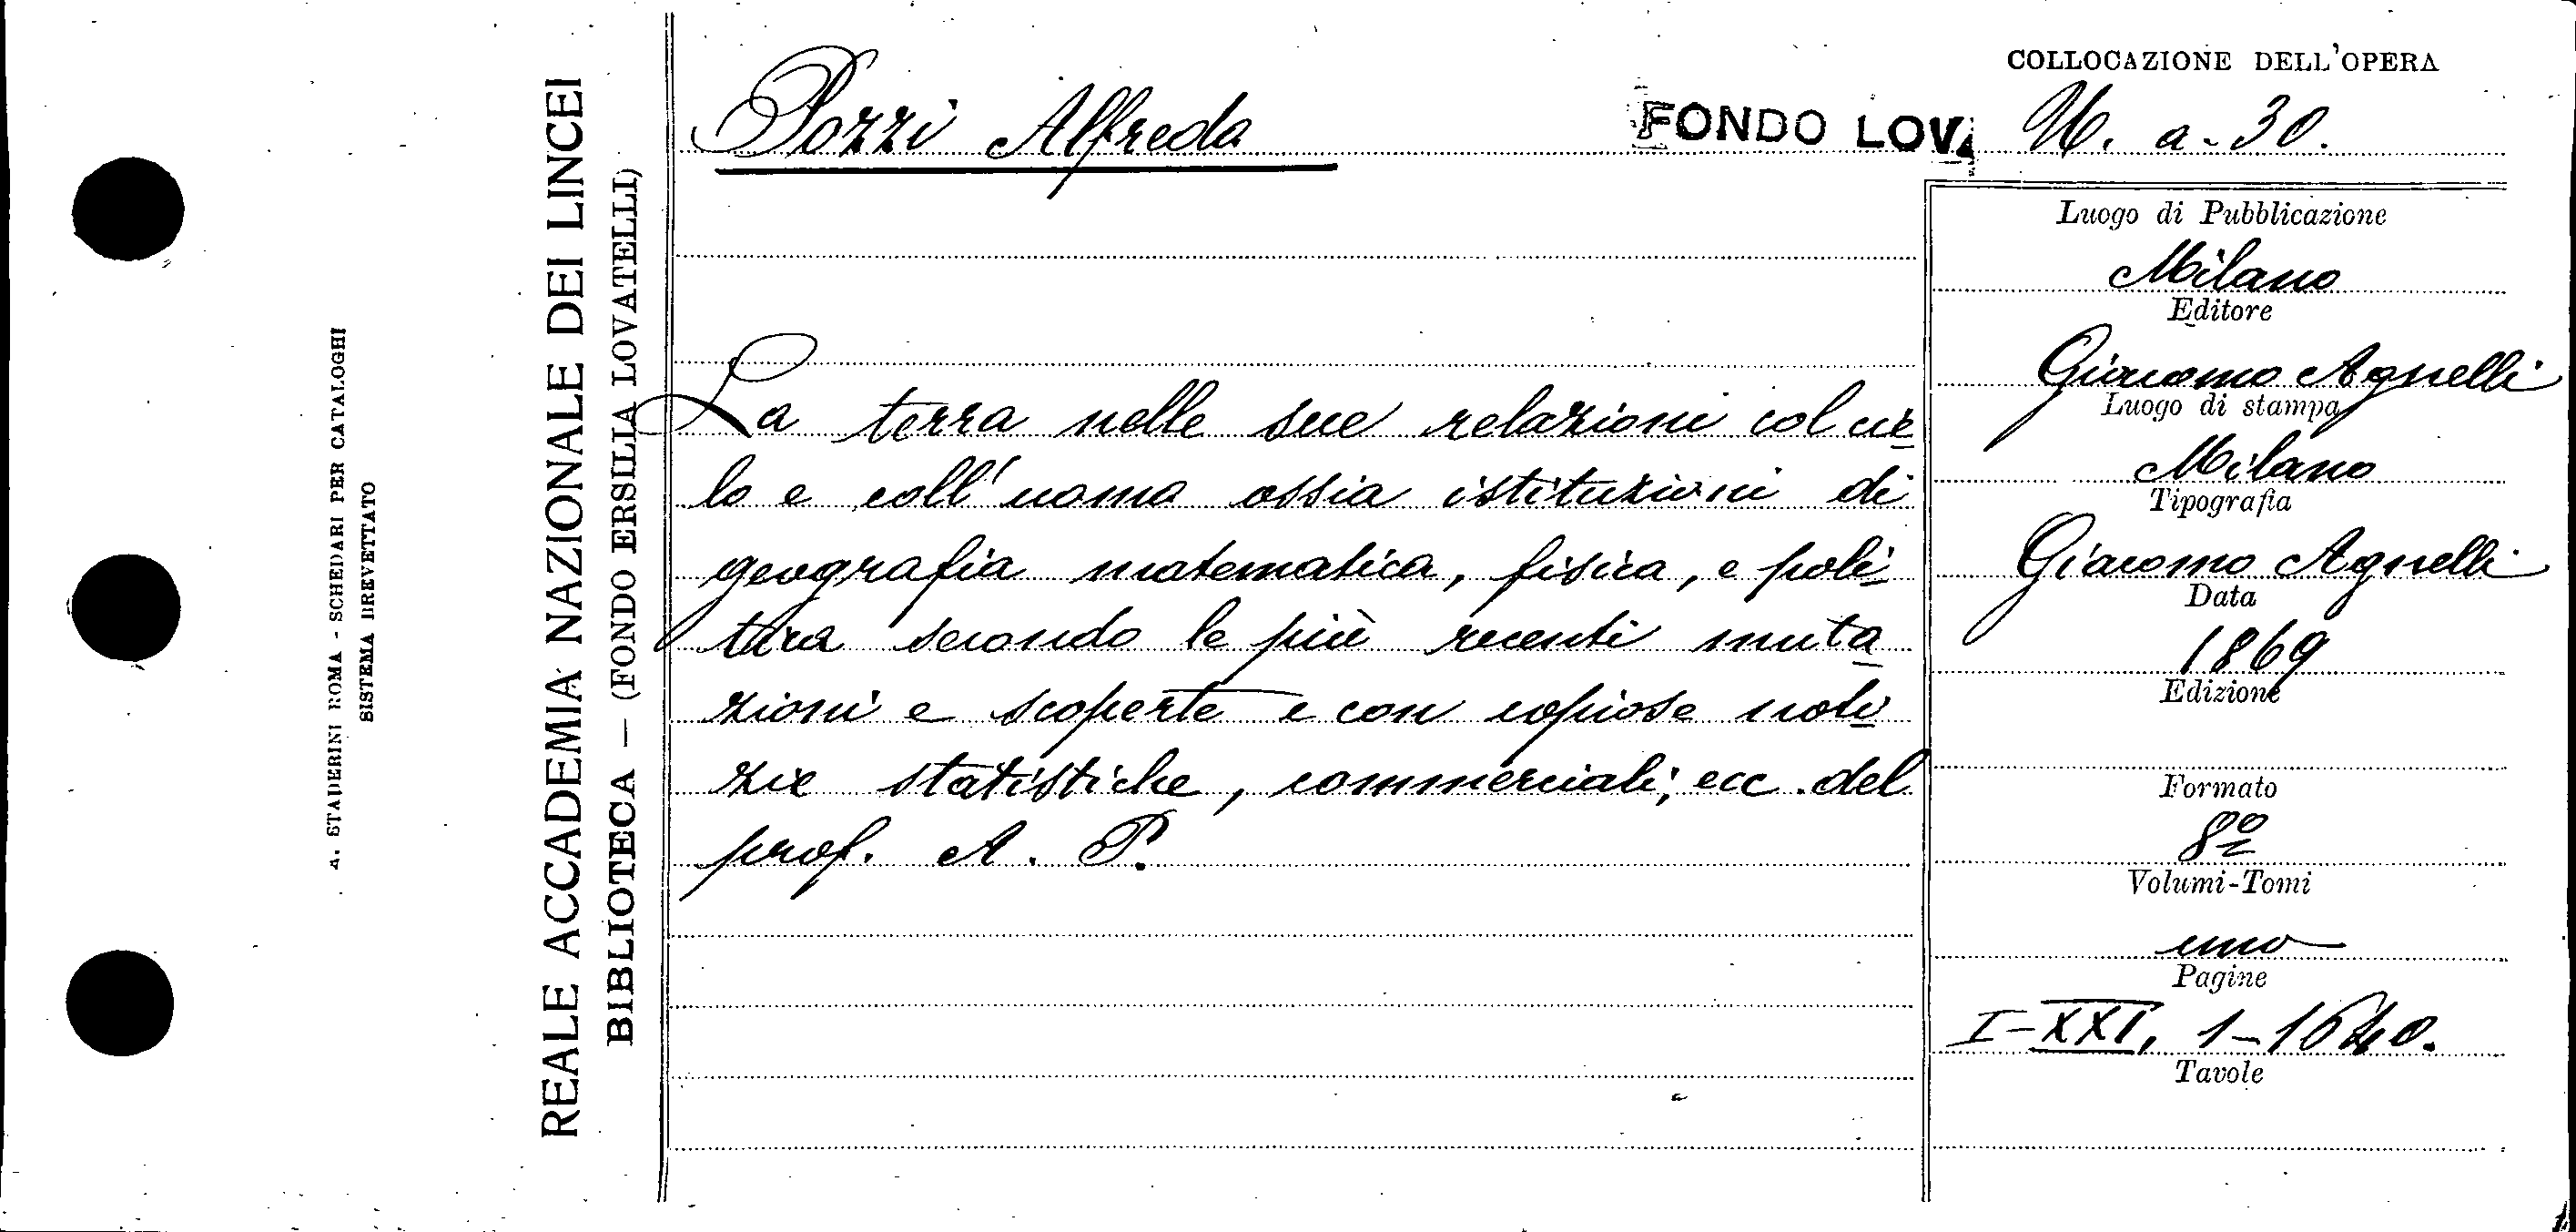 A. STADERINI ROMA - SCHEDARI PER CATALOGHI
SISTEMA BREVETTATO
REALE ACCADEMIA NAZIONALE DEI LINCEI
BIBLIOTECA — (FONDO ERSILIA LOVATELLI)
Pozzi Alfreda
FONDO LOV.
La terra nelle sue relazioni col cie
lo e coll' uomo ossia istituzioni di
geografia matematica, fisica, e poli
tica secondo le più recenti muta
zioni e scoperte e con copiose noti
zie statistiche, commerciali, ecc. del
prof. A. P.
COLLOCAZIONE DELL'OPERA
a. 30.
Luogo di Pubblicazione
Milano
Editore
Giacomo Agnelli
Luogo di stampa
Milano
Tipografia
Giacomo Agnelli
Data
1869
Edizione
Formato
8º
Volumi-Tomi
uno
Pagine
I-XXI, 1-1640.
Tavole